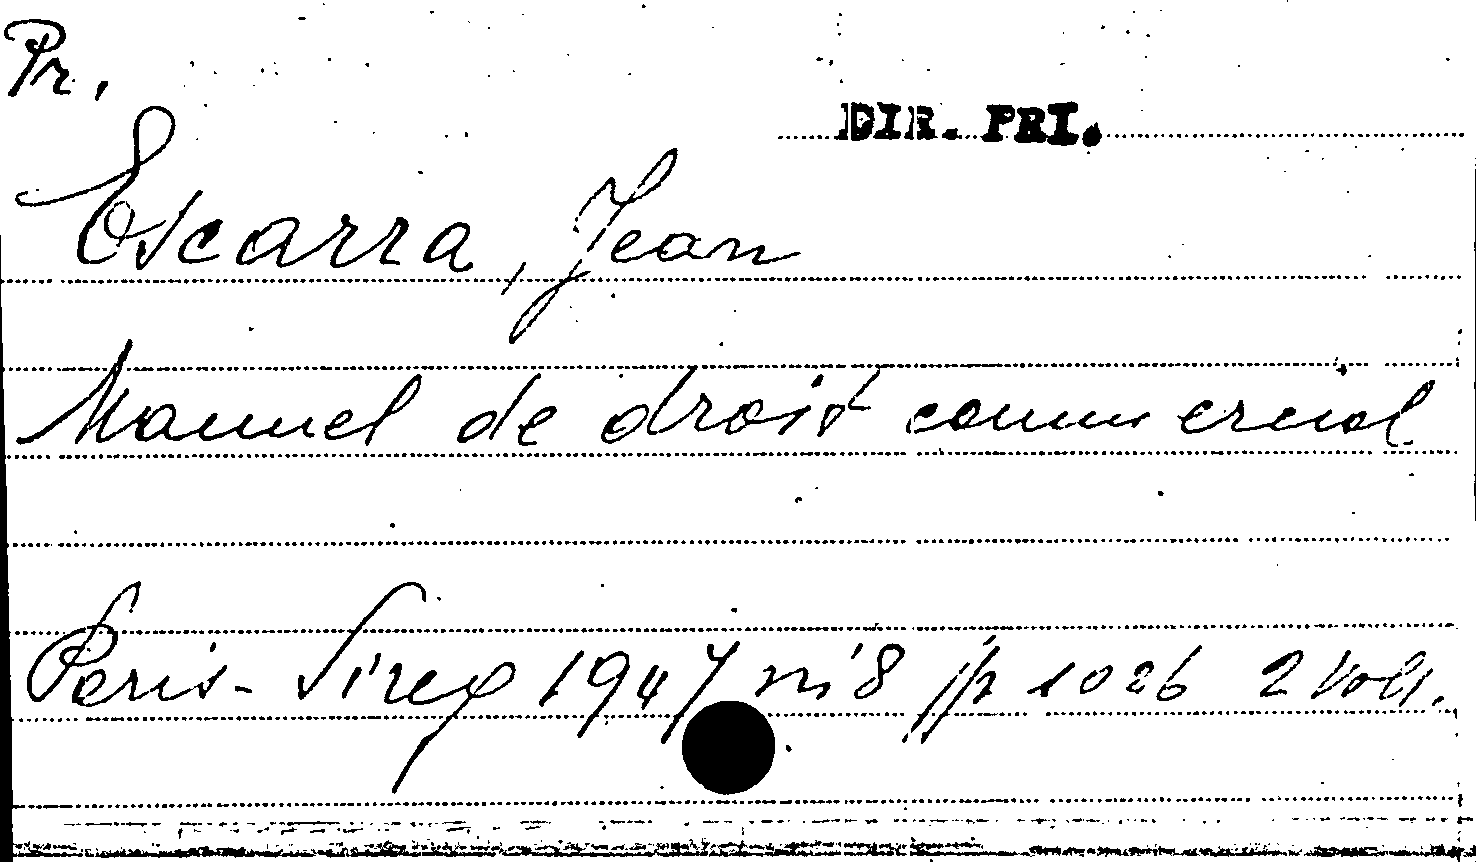 Pr.
DIR. PRI.
Escarra, Jean
Manuel de droit commercial
Paris - Sirey 1947 in 8 pp 1026 2 voll.